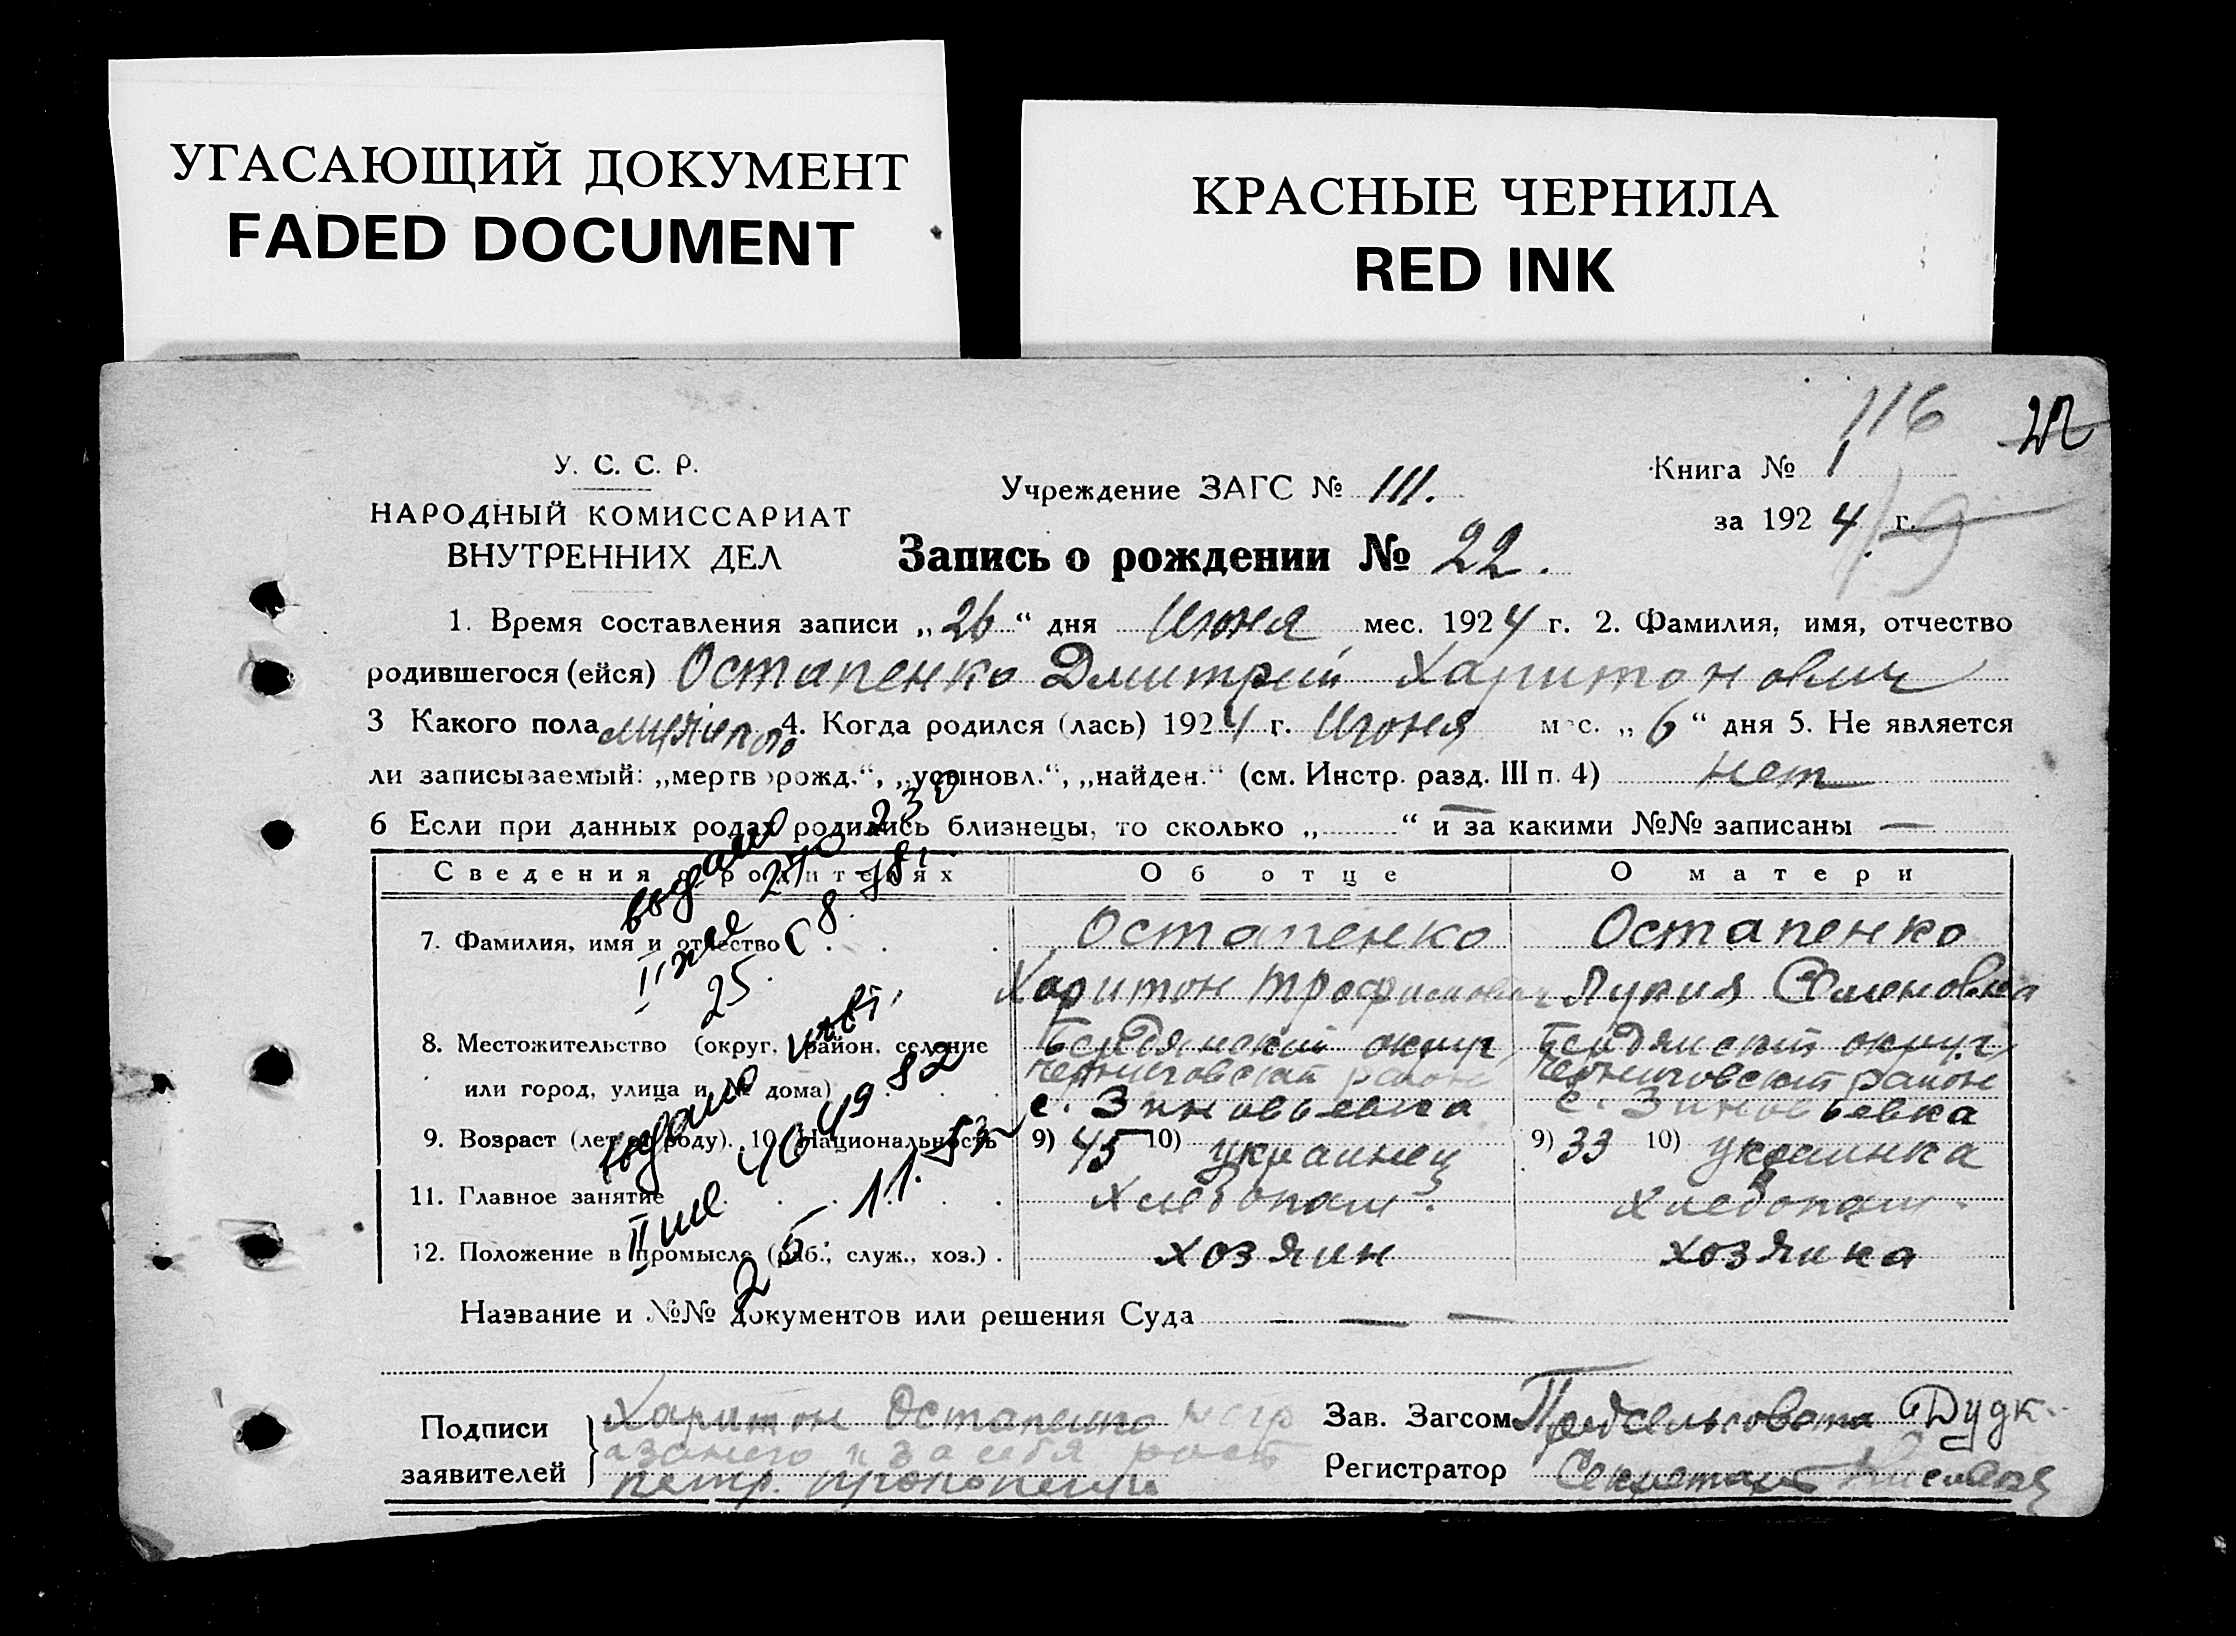 УГАСАЮЩИЙ ДОКУМЕНТ
FADED DOCUMENT
КРАСНЫЕ ЧЕРНИЛА
RED INK
116
У. С. С. Р.
НАРОДНЫЙ КОМИССАРИАТ
ВНУТРЕННИХ ДЕЛ
Учреждение ЗАГС № III.
Книга № 1
за 1924 г.
Запись о рождении № 22.
1. Время составления записи „26“ дня Июня мес. 1924 г. 2. Фамилия, имя, отчество
родившегося (ейся) Остапенко Дмитрий Харитонович
3 Какого пола 4. Когда родился (лась) 1924 г. Июня мес. „6“ дня 5. Не является
ли записываемый: „мертворожд.“, „усыновл.“, „найден.“ (см. Инстр. разд. III п. 4) нет
6 Если при данных родах родились близнецы, то сколько „—“ и за какими №№ записаны —
Сведения о родителях Об отце О матери
7. Фамилия, имя и отчество Остапенко Остапенко
Харитон Трофимович Лукия Семеновна
8. Местожительство (округ, район, селение Бердянский округ, Бердянский округ,
или город, улица и № дома) Черниговский район Черниговский район
с. Зиновьевка с. Зиновьевка
9. Возраст (лет от роду). 10. Национальность 9) 45 10) украинец 9) 33 10) украинка
11. Главное занятие Хлебопаш. Хлебопаш.
12. Положение в промысле (раб., служ., хоз.) хозяин хозяика
выдано
25. 8.
выдано
49982
2 - 11.
Название и №№ документов или решения Суда — — —
Подписи
заявителей
Харитон Остапенко негр
за себя
Зав. Загсом Предсельсовета Дудк
Регистратор Секретарь